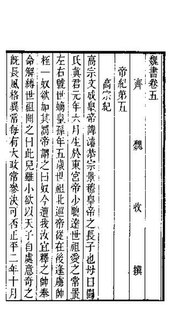 魏書卷五
齊魏收撰
帝紀第五
高宗紀
高宗文成皇帝諱濬恭宗景穆皇帝之長子也母曰閭
氏真君元年六月生於東宮帝少聰達世祖愛之常置
左右號世嫡皇孫年五歲世祖北巡帝從在後逢虜帥
桎一奴欲加其罰帝謂之曰奴今遭我汝宜釋之帥奉
命解縛世祖聞之曰此兒雖小欲以天子自處意奇之
既長風格異常每有大政常參決可否正平二年十月